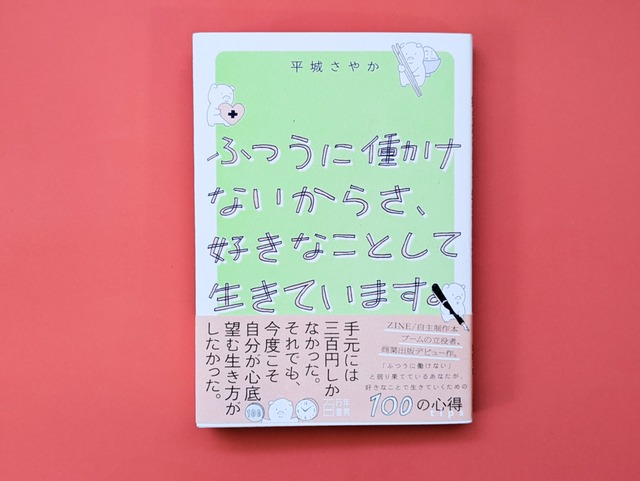 平城さやか
ふつうに働かけ
ないからさ、
好きなことして
生きています。
手元には
三百円しか
なかった。
それでも、
今度こそ
自分が心底
望む生き方が
したかった。
ZINE/自主制作本
ブームの立役者、
商業出版デビュー作。
「ふつうに働けない」
と困り果てているあなたが、
好きなことで生きていくための
100の心得
tips
百万年書房
100